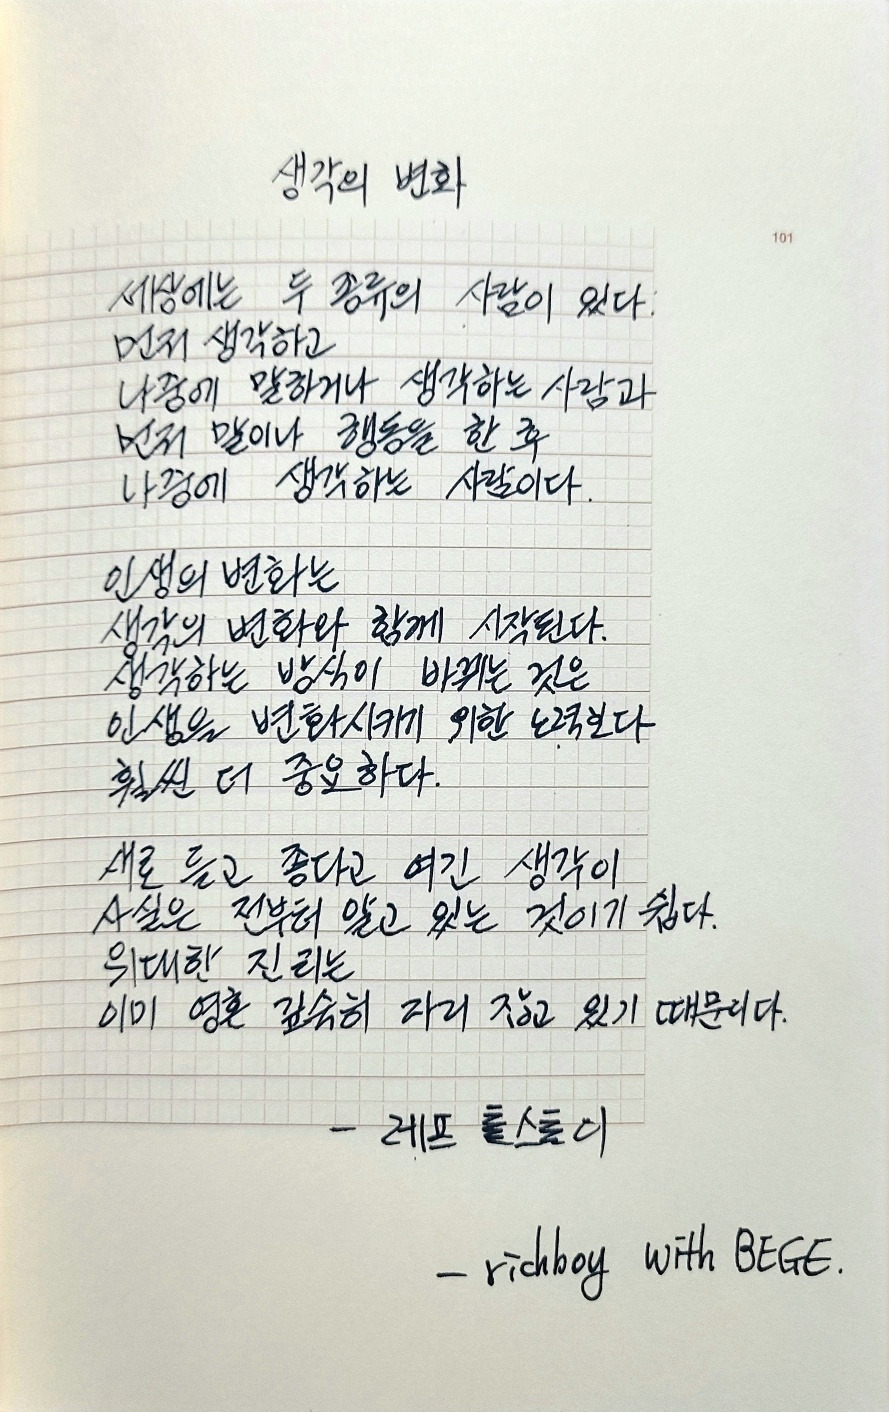 생각의 변화
101
세상에는 두 종류의 사람이 있다.
먼저 생각하고
나중에 말하거나 생각하는 사람과
먼저 말이나 행동을 한 후
나중에 생각하는 사람이다.
인생의 변화는
생각의 변화와 함께 시작된다.
생각하는 방식이 바뀌는 것은
인생을 변화시키기 위한 노력보다
훨씬 더 중요하다.
새로 듣고 좋다고 여긴 생각이
사실은 전부터 알고 있는 것이기 쉽다.
위대한 진리는
이미 영혼 깊숙히 자리 잡고 있기 때문이다.
- 레프 톨스토이
- richboy with BEGE.